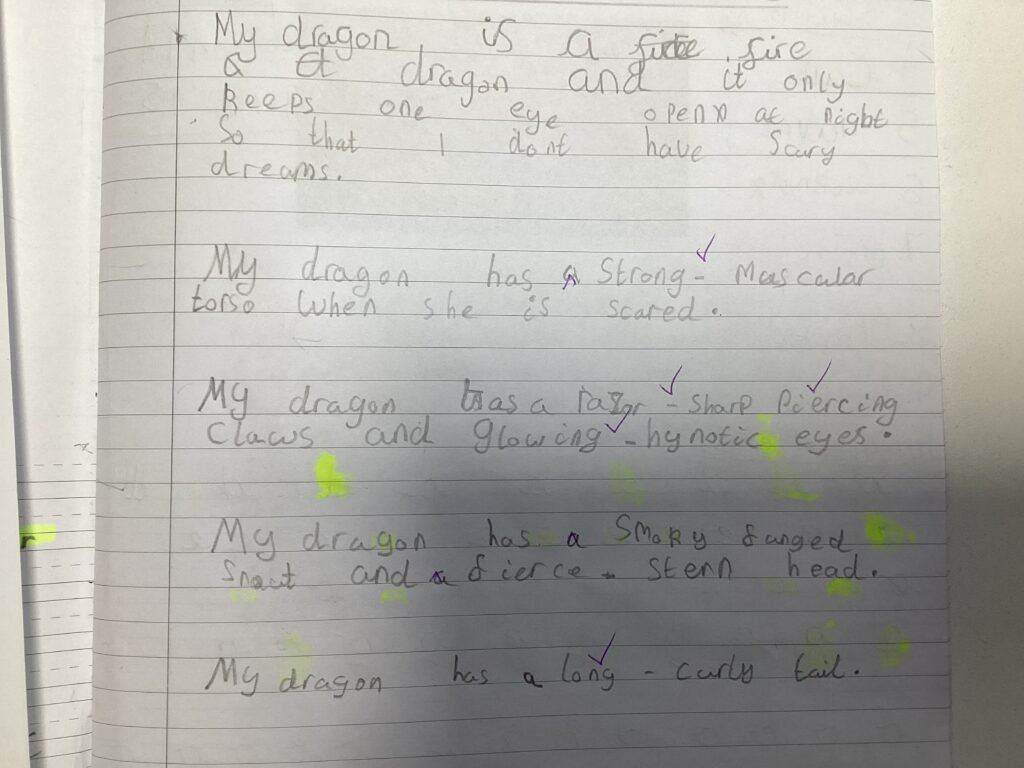 My dragon, is a fire
a dragon and it only
Keeps one eye open at night
So that I dont have Scary
dreams.
My dragon has a Strong - Muscular
torso when she is scared.
My dragon has a razor - sharp Piercing
Claws and glowing - hynotic eyes.
My dragon has a smoky fanged
Snout and a fierce - stern head.
My dragon has a long - curly tail.